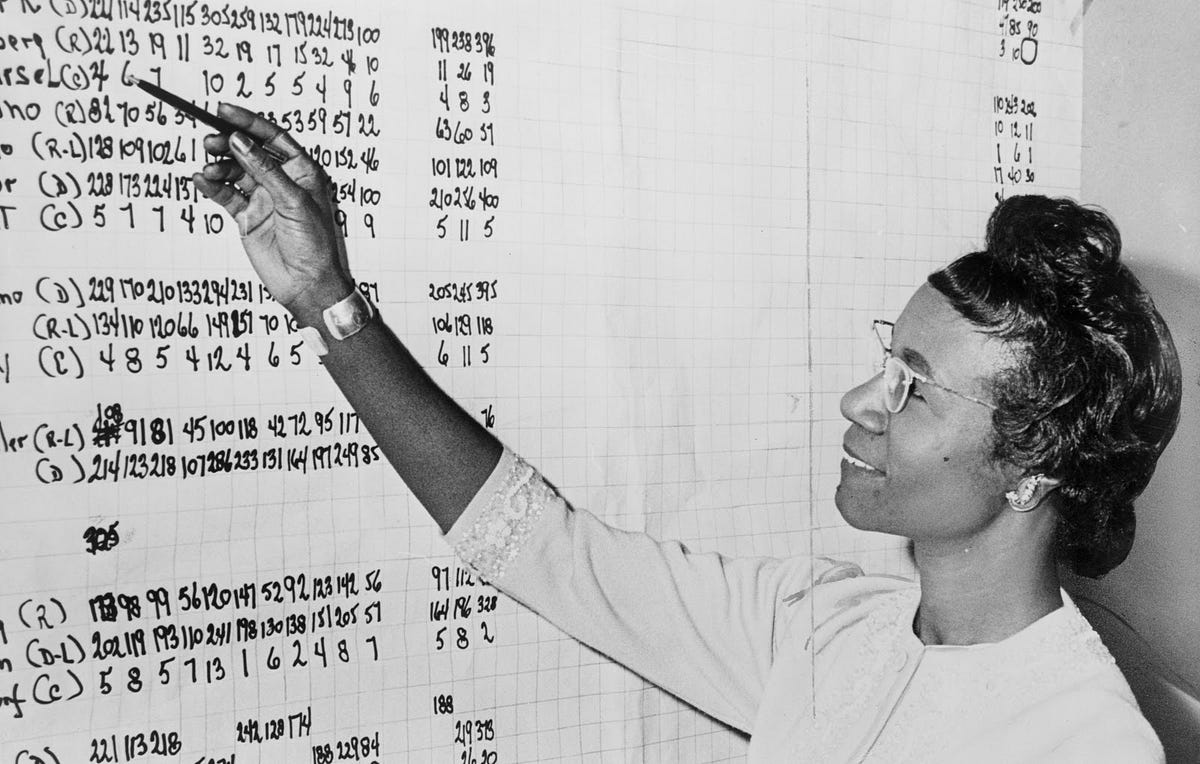 (D) 221 114 235 115 305 259 132 179 224 273 100
(R) 22 13 19 11 32 19 17 15 32 4 10 199 238 396
(C) 4 6 7 10 2 5 5 4 9 6 11 26 19
(R) 82 70 56 53 59 57 22 4 8 3
(R-L) 128 109 102 61 120 152 46 63 60 57
(D) 228 173 224 137 254 100 101 122 109
(C) 5 7 7 4 10 9 9 210 256 400
5 11 5
(D) 229 170 210 133 294 231 97 205 245 395
(R-L) 134 110 120 66 149 157 70 106 129 118
(C) 4 8 5 4 12 4 6 5 6 11 5
108
(R-L) 91 81 45 100 118 42 72 95 117 76
(D) 214 123 218 107 286 233 131 164 197 249 85
305
(R) 98 99 56 120 147 52 92 123 142 56 97 112
(D-L) 202 119 193 110 241 198 130 138 151 205 57 164 196 328
(C) 5 8 5 7 13 1 6 2 4 8 7 5 8 2
188
(D) 221 113 218 242 128 174 219 373
188 229 84 26 20
85 90
3 10
110 243 202
10 12 11
1 6 1
17 40 30